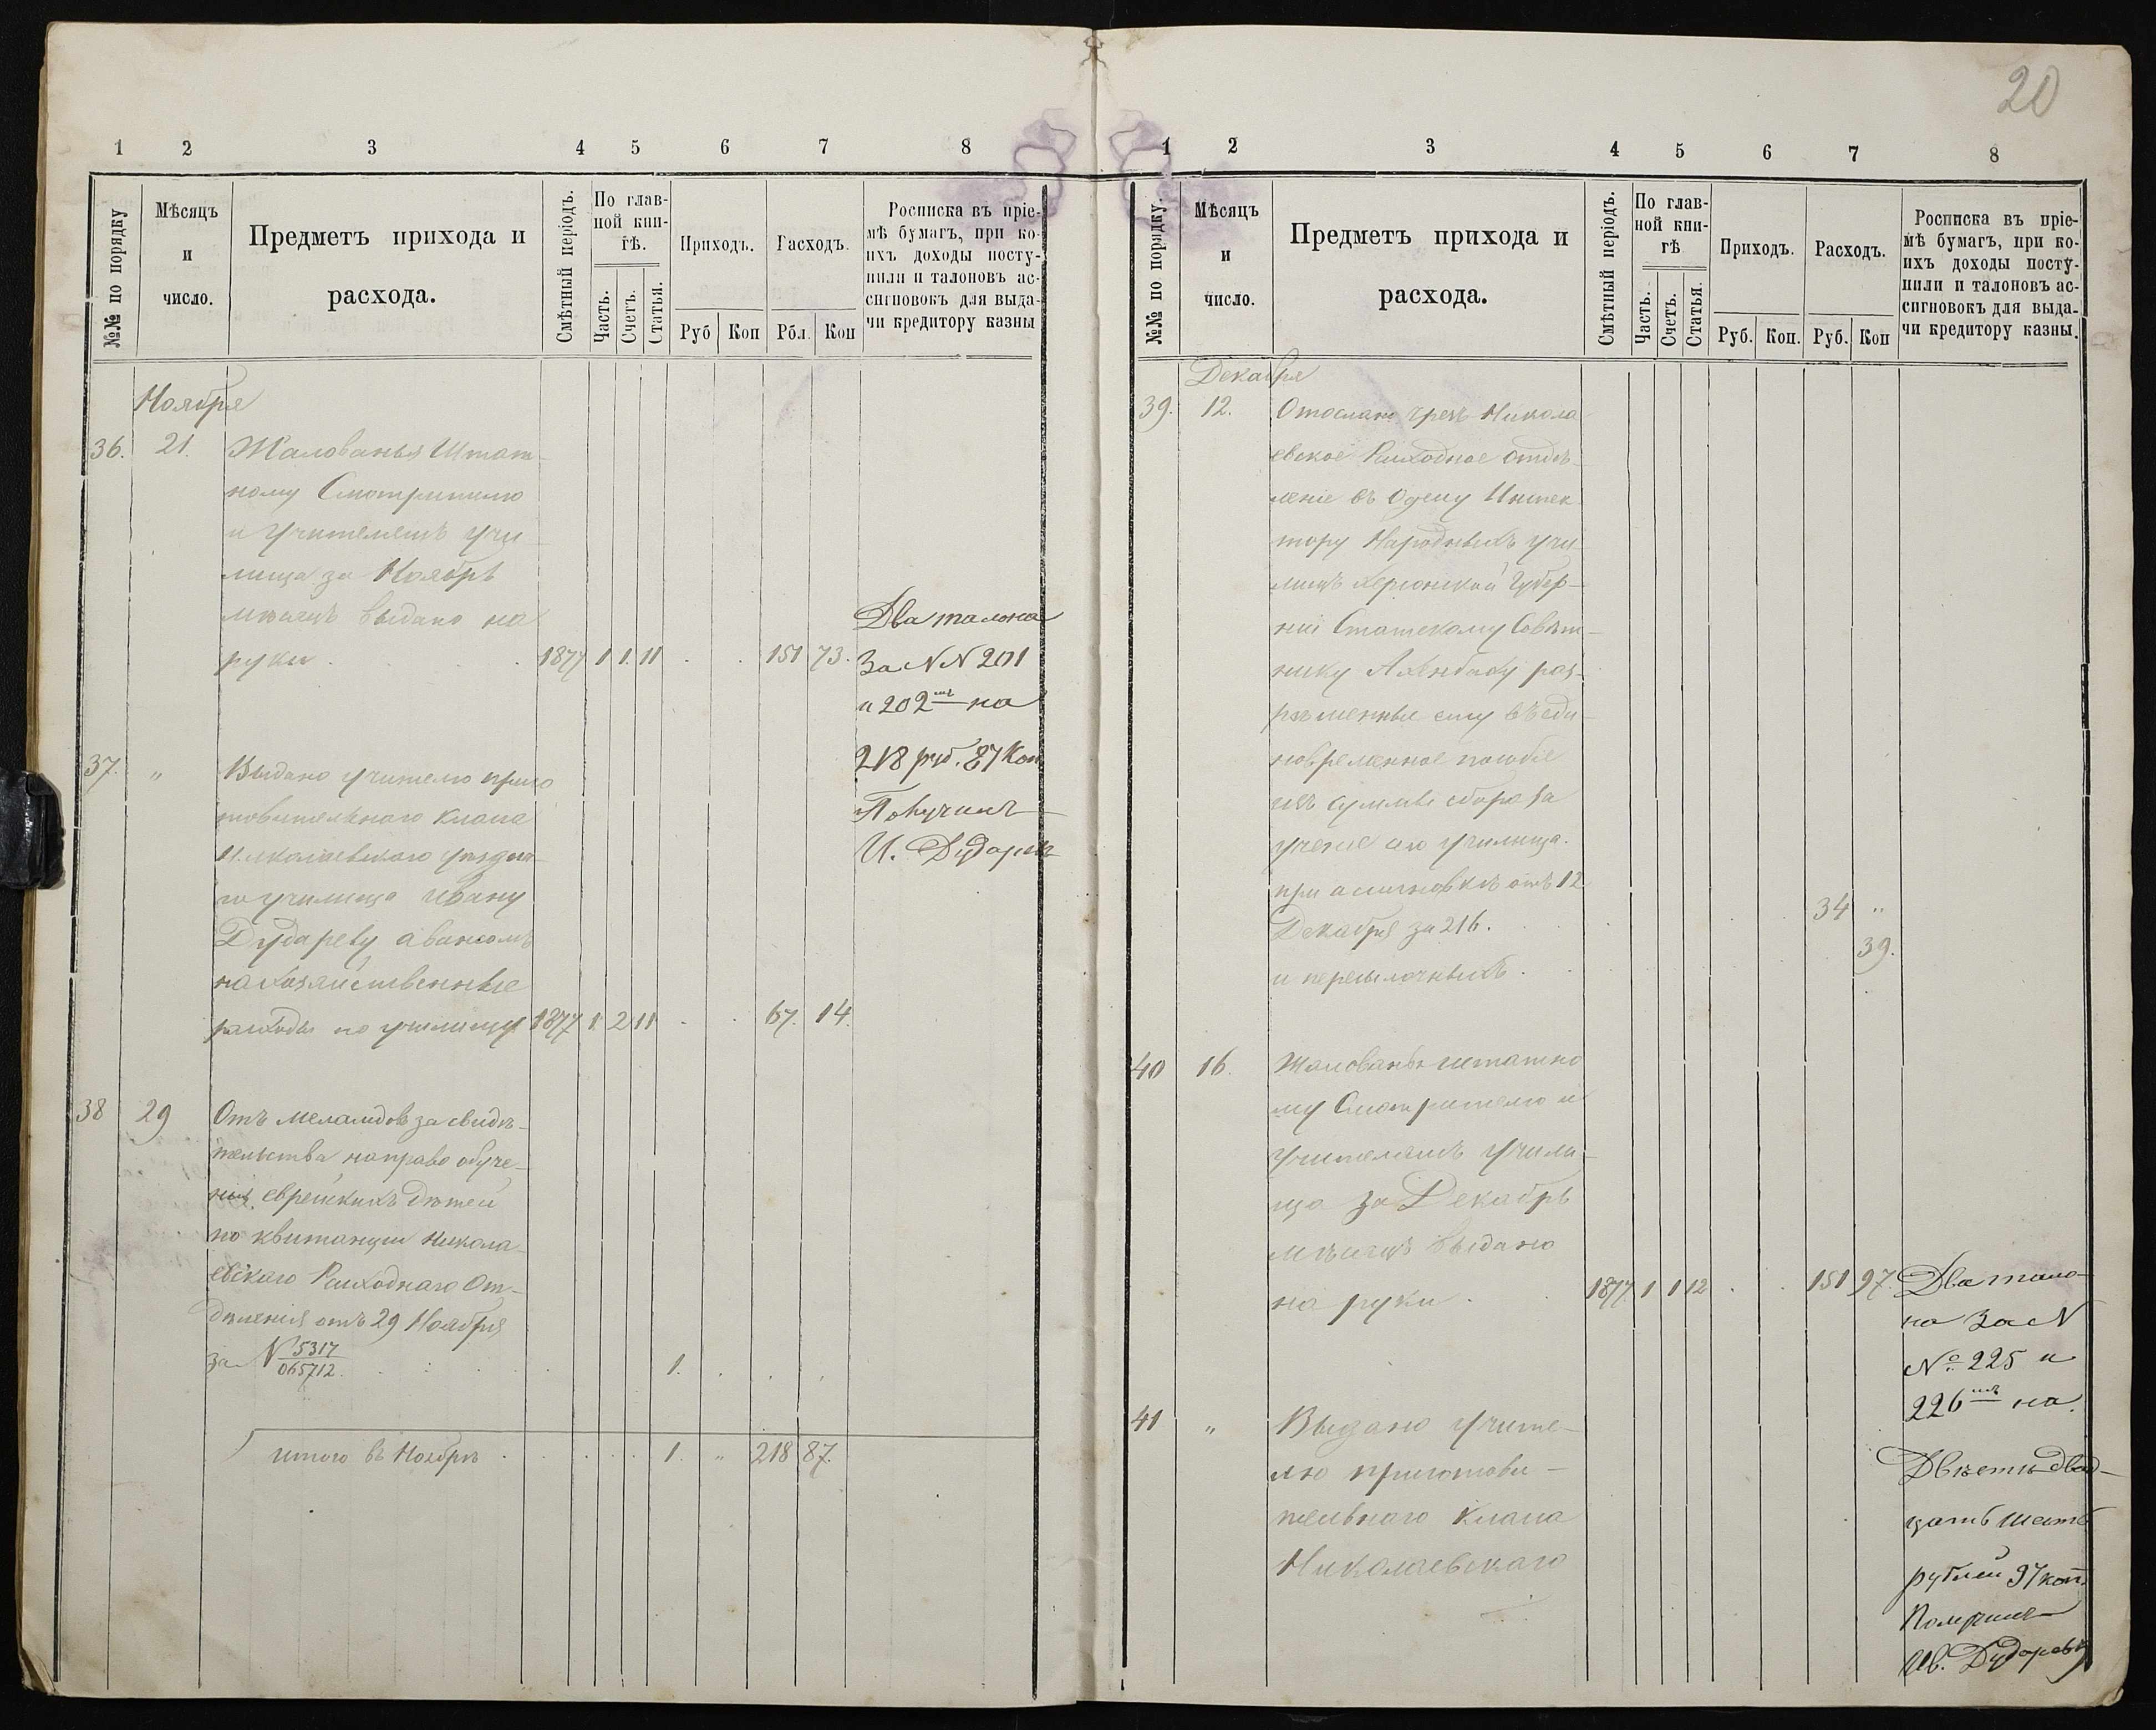 20
1 2 3 4 5 6 7 8
№№ по порядку
Мѣсяцъ
и
число.
Предметъ прихода и
расхода.
Смѣтный періодъ.
По глав-
ной кни-
гѣ.
Часть.
Счетъ.
Статья.
Приходъ.
Руб Коп
Расходъ.
Рбл. Коп
Росписка въ пріе-
мѣ бумагъ, при ко-
ихъ доходы посту-
пили и талоновъ ас-
сигновокъ для выда-
чи кредитору казны
Ноября
36. 21. Жалованья Штат-
ному Смотрителю
и Учителямъ учи-
лища за Ноябрь
мѣсяцъ выдано на
руки . . . 1877 1 1. 11 . . 151 73.
Два талона
За NN 201
и 202 на
218 руб. 87 Коп
Получилъ
И. Дударевъ
37. „ Выдано учителю приго
товительнаго класса
Николаевскаго уѣздна-
го училища Ивану
Дудареву авансомъ
на хозяйственные
расходы по училищу 1877 1. 2 11 . . 67. 14.
38 29 Отъ меламдовъ за свидѣ-
тельства на право обуче-
нія еврейскихъ дѣтей
по квитанціи Никола-
евскаго Расходнаго От-
дѣленія отъ 29 Ноября
за N 5317
065712. . . . 1. . . .
итого въ Ноябрѣ . . . . . 1. „ 218 87.
1 2 3 4 5 6 7 8
№№ по порядку.
Мѣсяцъ
и
число.
Предметъ прихода и
расхода.
Смѣтный періодъ.
По глав-
ной кни-
гѣ
Часть.
Счетъ.
Статья.
Приходъ.
Руб. Коп.
Расходъ.
Руб. Коп
Росписка въ пріе-
мѣ бумагъ, при ко-
ихъ доходы посту-
пили и талоновъ ас-
сигновокъ для выда-
чи кредитору казны.
Декабря
39. 12. Отослано чрезъ Никола
евское Расходное отдѣ-
леніе въ Одессу Инспек-
тору Народныхъ учи-
лищъ Херсонской Губер-
ніи Статскому Совѣт-
нику раз-
рѣшенные ему въ еди-
новременное пособіе
изъ суммы сбора за
ученіе сего училища.
при ассигновкѣ отъ 12
Декабря за 216. . . . 34 „
и пересылочныхъ . . . 39.
40 16. Жалованья штатно
му Смотрителю и
Учителямъ Учили-
ща за Декабрь
мѣсяцъ выдано
на руки . . 1877. 1 1 12 . . 151 97.
Два тало-
на За N
№ 225 и
226 на
Двѣсти двад-
цать шесть
рублей 97 коп.
Получилъ
Ив. Дударевъ
41 „ Выдано Учите-
лю приготови-
тельнаго класса
Николаевскаго